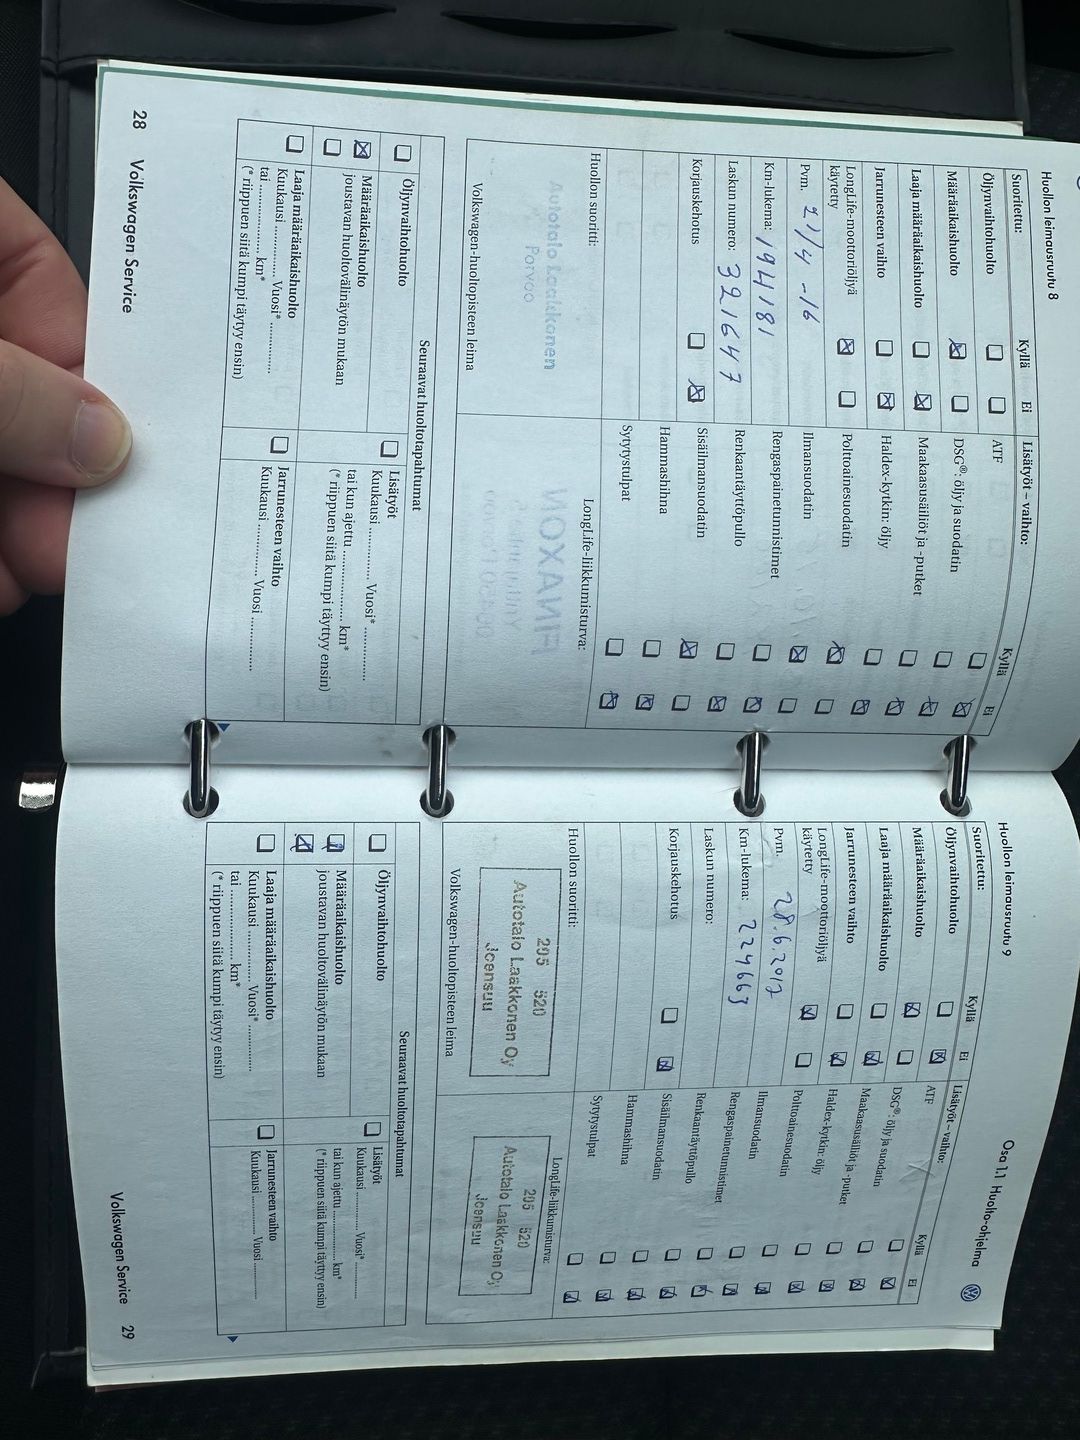 Huollon leimausruutu 8
Suoritettu: Kyllä Ei
Öljynvaihtohuolto
Määräaikaishuolto
Laaja määräaikaishuolto
Jarrunesteen vaihto
LongLife-moottoriöljyä
käytetty
Pvm. 21/4 -16
Km-lukema: 194181
Laskun numero: 321647
Korjauskehotus
Huollon suoritti:
Autotalo Laakkonen
Porvoo
Volkswagen-huoltopisteen leima
Lisätyöt – vaihto: Kyllä Ei
ATF
DSG®: öljy ja suodatin
Maakaasusäiliöt ja -putket
Haldex-kytkin: öljy
Polttoainesuodatin
Ilmansuodatin
Rengaspainetunnistimet
Renkaantäyttöpullo
Sisäilmansuodatin
Hammashihna
Sytytystulpat
LongLife-liikkumisturva:
Seuraavat huoltotapahtumat
Öljynvaihtohuolto
Määräaikaishuolto
joustavan huoltovälinäytön mukaan
Laaja määräaikaishuolto
Kuukausi .............. Vuosi* ..............
tai .................... km*
(* riippuen siitä kumpi täytyy ensin)
Lisätyöt
Kuukausi .............. Vuosi* ..............
tai kun ajettu .................... km*
(* riippuen siitä kumpi täyttyy ensin)
Jarrunesteen vaihto
Kuukausi .............. Vuosi ..............
28 Volkswagen Service
Huollon leimausruutu 9
Osa 1.1 Huolto-ohjelma
Suoritettu: Kyllä Ei
Öljynvaihtohuolto
Määräaikaishuolto
Laaja määräaikaishuolto
Jarrunesteen vaihto
LongLife-moottoriöljyä
käytetty
Pvm. 28.6.2017
Km-lukema: 224663
Laskun numero:
Korjauskehotus
Huollon suoritti:
205 520
Autotalo Laakkonen Oy
Joensuu
Volkswagen-huoltopisteen leima
Lisätyöt – vaihto: Kyllä Ei
ATF
DSG®: öljy ja suodatin
Maakaasusäiliöt ja -putket
Haldex-kytkin: öljy
Polttoainesuodatin
Ilmansuodatin
Rengaspainetunnistimet
Renkaantäyttöpullo
Sisäilmansuodatin
Hammashihna
Sytytystulpat
LongLife-liikkumisturva:
205 520
Autotalo Laakkonen Oy
Joensuu
Seuraavat huoltotapahtumat
Öljynvaihtohuolto
Määräaikaishuolto
joustavan huoltovälinäytön mukaan
Laaja määräaikaishuolto
Kuukausi .............. Vuosi* ..............
tai .................... km*
(* riippuen siitä kumpi täytyy ensin)
Lisätyöt
Kuukausi .............. Vuosi* ..............
tai kun ajettu .................... km*
(* riippuen siitä kumpi täyttyy ensin)
Jarrunesteen vaihto
Kuukausi .............. Vuosi ..............
Volkswagen Service 29